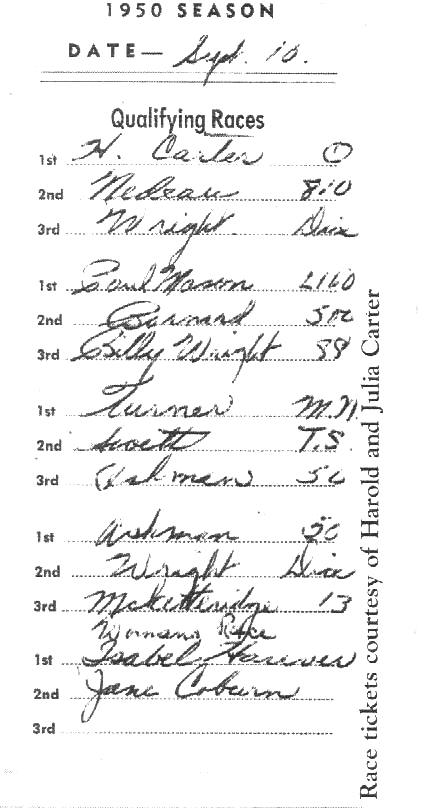 1950 SEASON
DATE— Sept. 10.
Qualifying Races
1st H. Carter 1
2nd Nedeau
3rd Wright Dice
1st Paul Mason
2nd Barnard
3rd Billy Wright 88
1st Turner M.N.
2nd T.S.
3rd Ashman
1st Ashman
2nd Wright Dice
3rd McKetheridge 13
Womans Race
1st Isabel
2nd Jane Coburn
3rd
Race tickets courtesy of Harold and Julia Carter